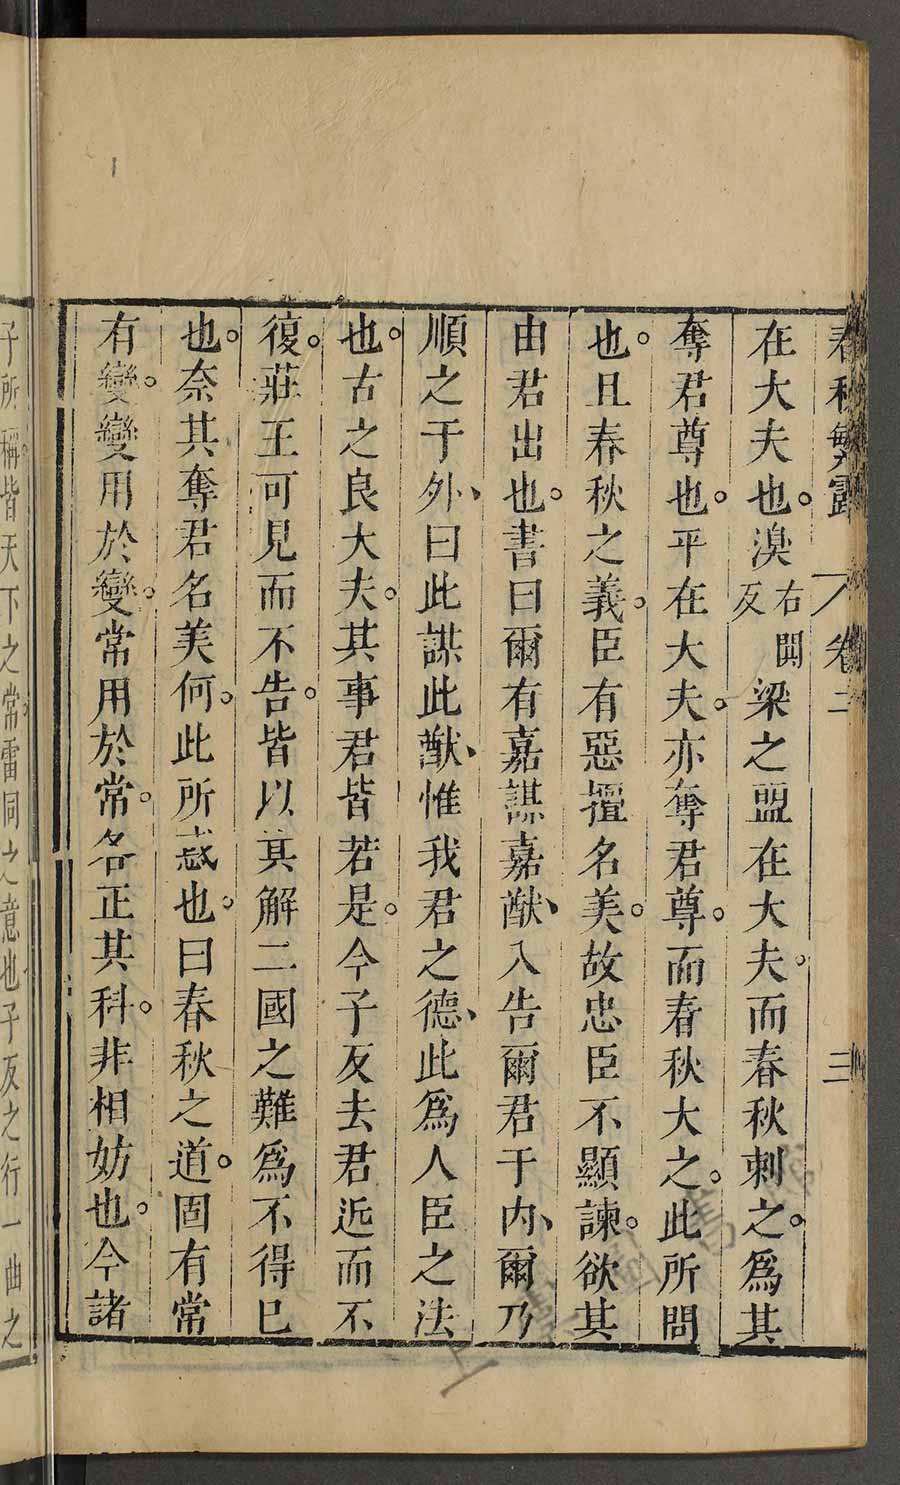 春秋繁露 卷二 三
在大夫也。溴右闃反梁之盟在大夫。而春秋刺之。爲其
奪君尊也。平在大夫。亦奪君尊。而春秋大之。此所間
也。且春秋之義。臣有惡擅名美。故忠臣不顯諫。欲其
由君出也。書曰爾有嘉謀嘉猷、入告爾君于內、爾乃
順之于外、曰此謀此猷、惟我君之德、此爲人臣之法
也。古之良大夫。其事君皆若是。今子反去君近而不
復。莊王可見而不告。皆以其解二國之難爲不得已
也。奈其奪君名美何。此所惑也。曰春秋之道。固有常
有變。變用於變。常用於常。各正其科。非相妨也。今諸
子所稱皆天下之常雷同之意也子反之行一曲之